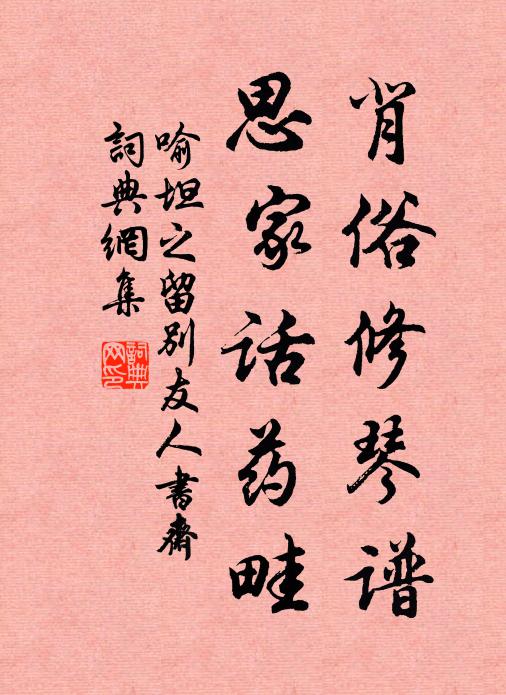 肖俗修琴谱
思家话药畦
喻坦之留别友人书斋
詞典網集
詞典网印